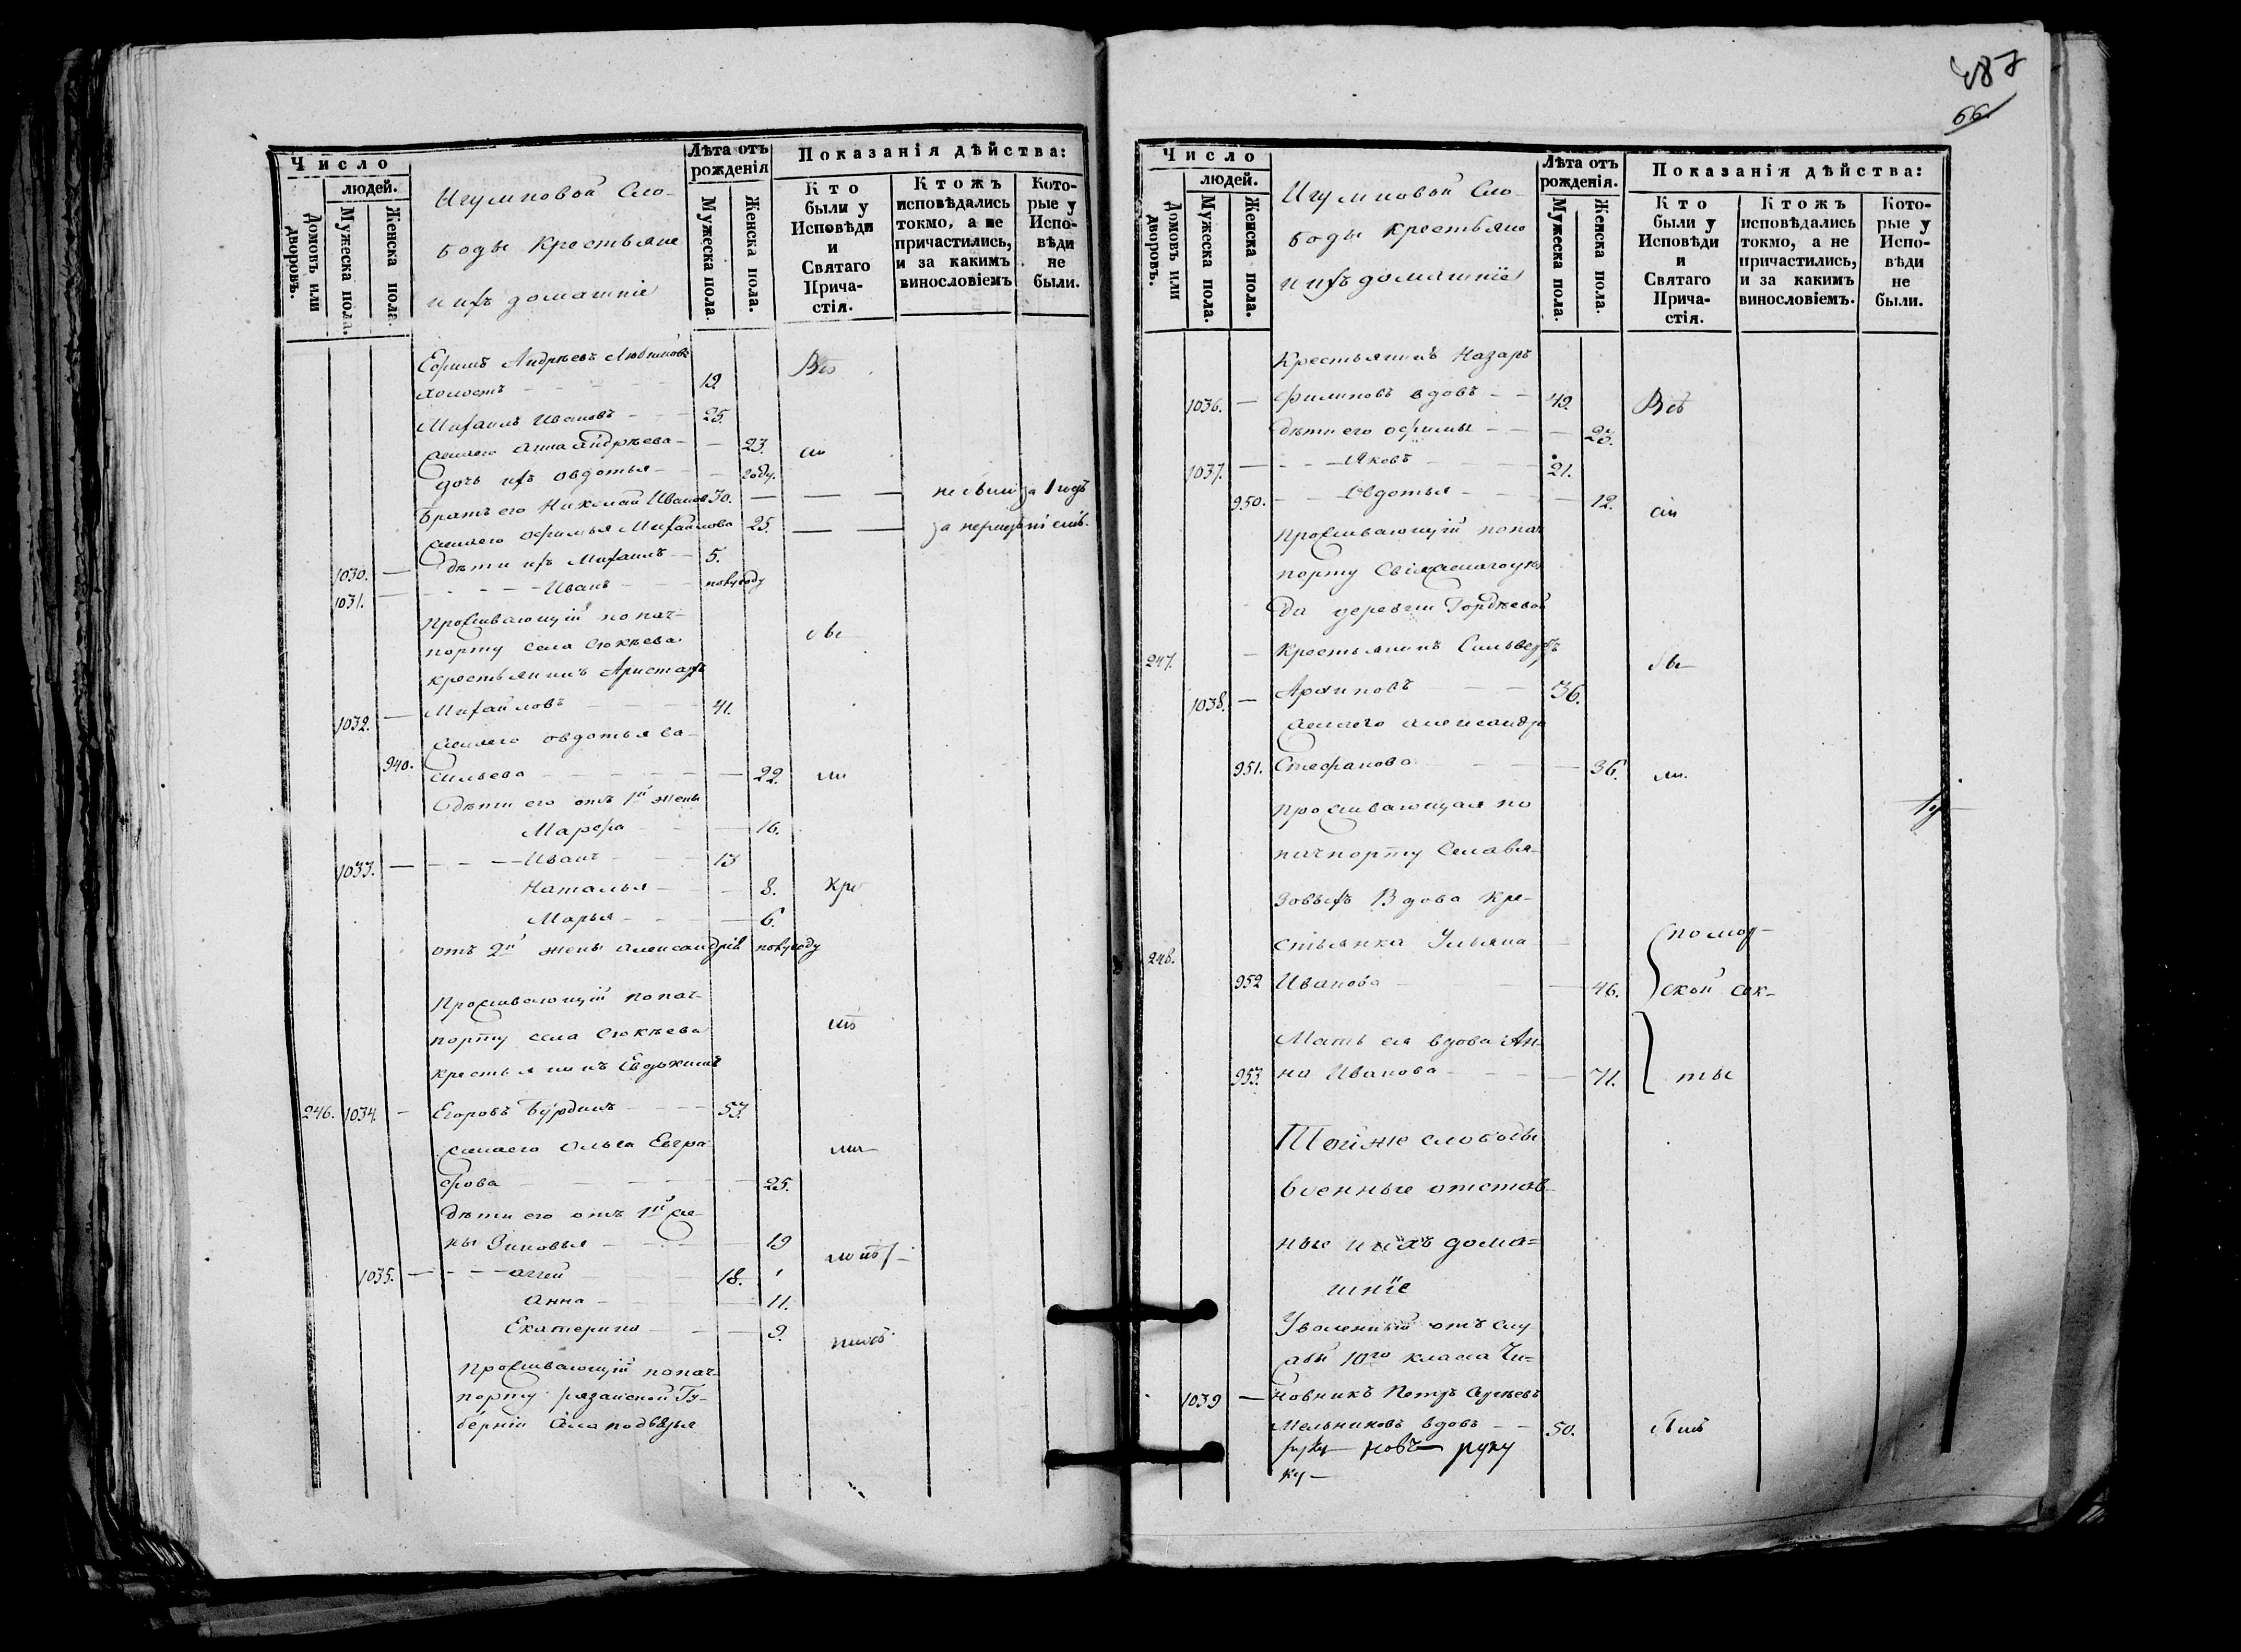 487
66.
Число
людей.
Домовъ или дворовъ.
Мужеска пола.
Женска пола.
Игумновой Сло-
боды Крестьяне
и ихъ домашніе
Лѣта отъ рожденія
Мужеска пола.
Женска пола.
Показанія дѣйства:
Кто были у Исповѣди и Святаго Прича-стія.
Ктожъ исповѣдались токмо, а не причастились, и за какимъ винословіемъ
Кото-рые у Испо-вѣди не были.
Ефимъ Андреевъ
холостъ - - - 19.
Михаилъ Ивановъ - - 25.
жена его Анна Андреева - - 23.
дочь ихъ Овдотья - - 2 году.
Братъ его Николай Ивановъ 30. — — — не были за 1 годъ
жена его Офимья Михайлова 25. — —
1030. — дѣти ихъ Михаилъ - 5.
1031. — - - - Иванъ - - полугоду
Проживающій по пач-
порту села Сюкѣева
крестьянинъ Аристархъ
1032. — Михайловъ - - - 41.
жена его Овдотья Ва-
940. сильева - - - - 22.
дѣти его отъ 1й жены
Марфа - - — 16.
1033. — - - — Иванъ - - 13
Наталья - - 8.
Марья - - — 6.
отъ 2й жены Александра полугоду
Проживающій по пач-
порту села Сюкѣева
крестьянинъ Евдокимъ
246. 1034. - Егоровъ Бурдинъ - - - 53.
жена его Ольга Евгра-
фова - - - - 25.
дѣти его отъ 1й же-
ны Зиновья - - - 19
1035. — - - — Аггей - - 18.
Анна - - 11.
Екатерина - - — 9.
Проживающій по пач-
порту Рязанской Гу-
берніи села Подвязья
Число
людей.
Домовъ или дворовъ.
Мужеска пола.
Женска пола.
Игумновой Сло-
боды Крестьяне
и ихъ домашніе
Лѣта отъ рожденія.
Мужеска пола.
Женска пола.
Показанія дѣйства:
Кто были у Исповѣди и Святаго Прича-стія.
Ктожъ исповѣдались токмо, а не причастились, и за какимъ винословіемъ.
Кото-рые у Испо-вѣди не были.
Крестьянинъ Назаръ
1036. — Филиповъ вдовъ - - 49. Всѣ
дѣти его - - — 23.
1037. — - - — Яковъ - - 21.
950. - - — Овдотья - - — 12.
Проживающій по пач-
порту Свіяжскаго уѣз-
да деревни Гордѣевой
247. - Крестьянинъ
1038. — Архиповъ - - 36.
жена его Александра
951. Стефанова - - — 36.
Проживающая по
пачпорту
Вдова Кре-
248. стьянка Ульяна
952 Иванова - - — 46.
Мать ея вдова Ан-
953. на Иванова - - — 71.
помор-
ской сек-
ты
Той же слободы
военные отстав-
ные и ихъ дома=
шніе
Уволенный отъ слу-
жбы 10го класса Чи=
1039 — новникъ Петръ Сергѣевъ
Мельниковъ вдовъ - - 50. былъ
руку